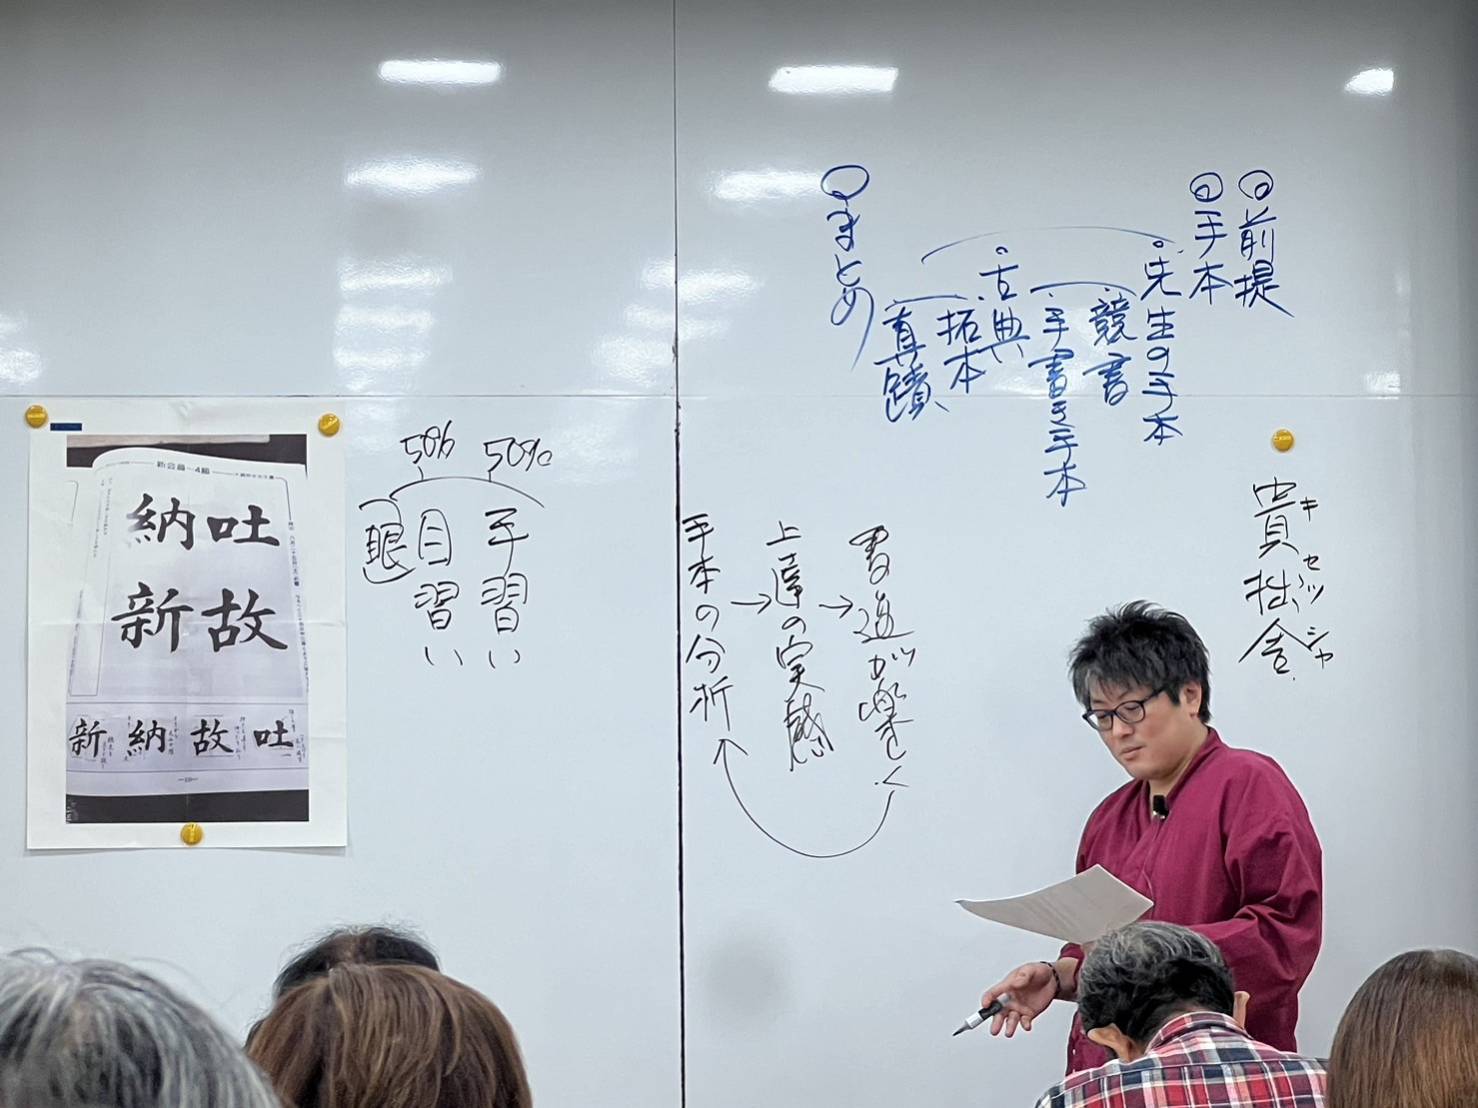 前提
手本
先生の手本
競書
手書き手本
古典
拓本
真蹟
まとめ
貴拙舎
キセッシャ
書道が楽しく
上達の実感
手本の分析
50%
50%
手習い
目習い
眼
新会員~4級
吐故
納新
吐
故
納
新